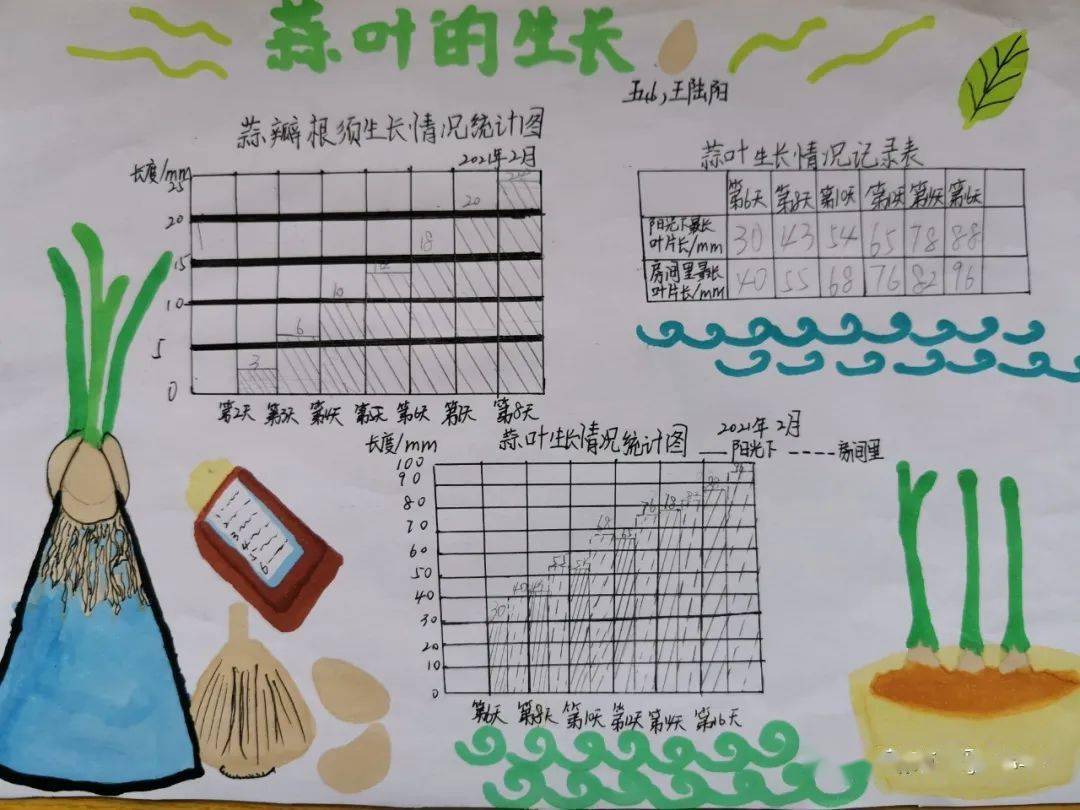 蒜叶的生长
五4b,王陆阳
蒜瓣根须生长情况统计图
2021年2月
长度/mm
25
20
15
10
5
0
3
6
10
18
20
第2天 第3天 第4天 第5天 第6天 第7天 第8天
蒜叶生长情况记录表
第6天 第8天 第10天 第12天 第14天 第16天
阳光下最长叶片长/mm 30 43 54 65 78 88
房间里最长叶片长/mm 40 55 68 76 82 96
蒜叶生长情况统计图
2021年2月
阳光下 房间里
长度/mm
100
90
80
70
60
50
40
30
20
10
0
30
68
76
78
第6天 第8天 第10天 第12天 第14天 第16天